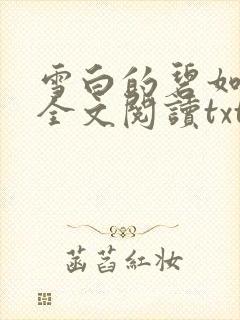 雪白的碧如
全文閱讀txt
菡萏紅妆